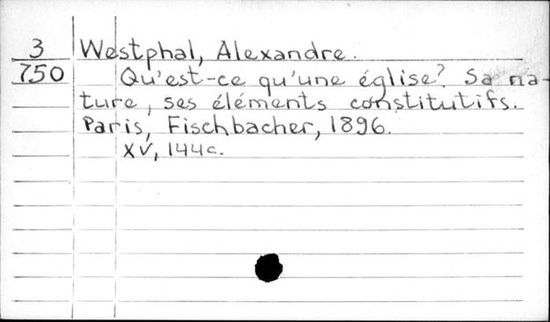 3 Westphal, Alexandre.
750 Qu'est-ce qu'une église? Sa na-
ture, ses éléments constitutifs.
Paris, Fischbacher, 1896.
XV, 144c.